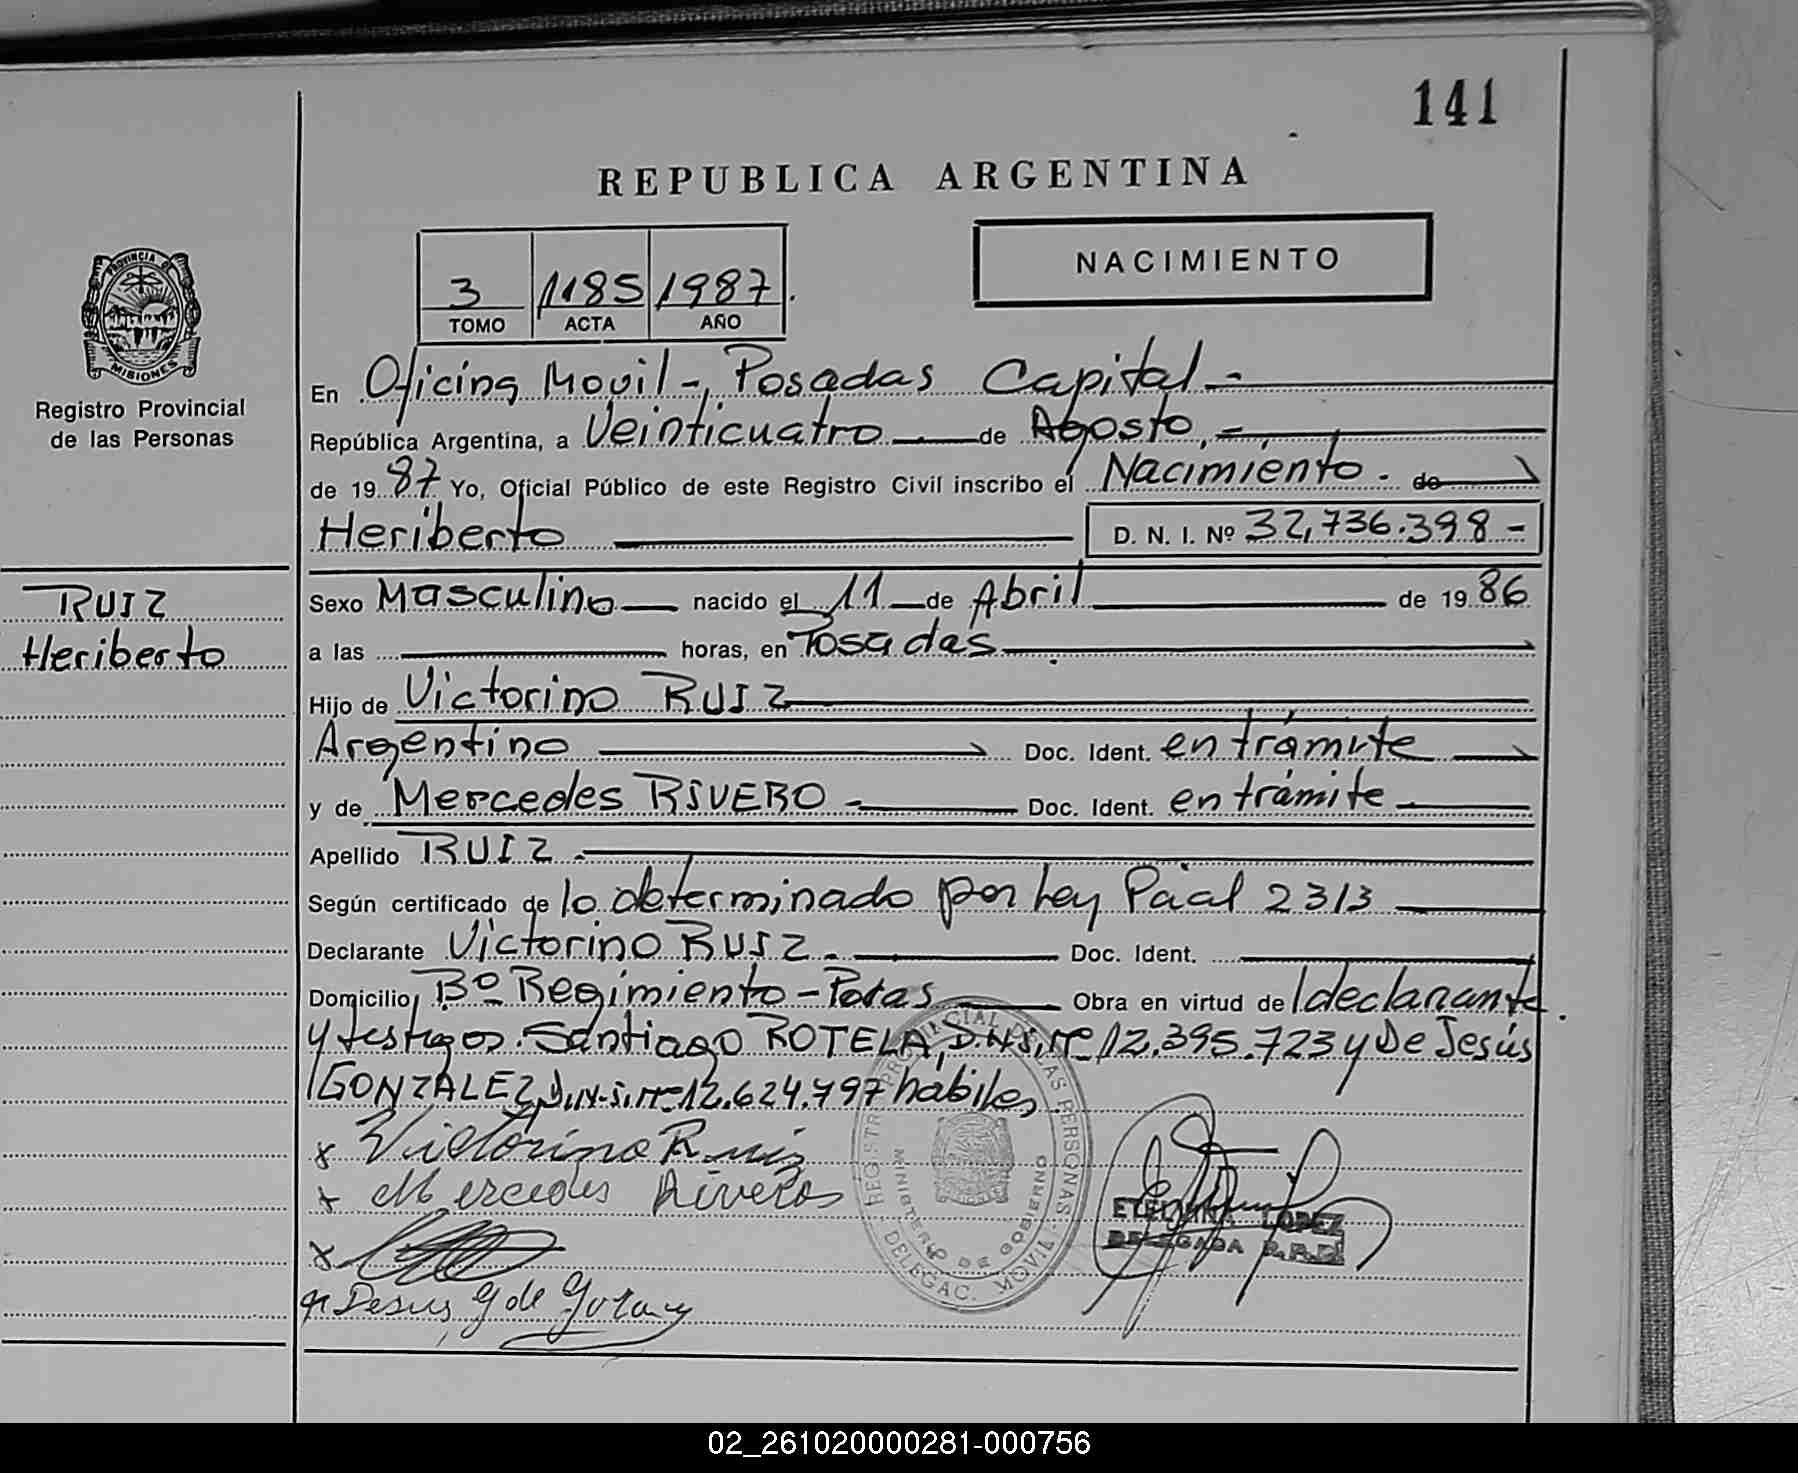 141
REPUBLICA ARGENTINA
3 1185 1987.
TOMO ACTA AÑO
NACIMIENTO
PROVINCIA DE MISIONES
Registro Provincial
de las Personas
RUIZ
Heriberto
En Oficina Movil-, Posadas Capital -
República Argentina, a Veinticuatro de Agosto, -
de 1987 Yo, Oficial Público de este Registro Civil inscribo el Nacimiento. de
Heriberto D. N. I. Nº 32,736.398 -
Sexo Masculino nacido el 11 de Abril de 1986
a las horas, en Posadas
Hijo de Victorino RUIZ
Argentino Doc. Ident. en trámite
y de Mercedes RIVERO - Doc. Ident. en trámite
Apellido RUIZ.
Según certificado de lo determinado por Ley Pcial 2313
Declarante Victorino RUIZ. Doc. Ident.
Domicilio Bº Regimiento - Posas Obra en virtud de l declarante
y testigos. Santiago ROTELA, D.N.I. Nº 12.395.723 y De Jesús
GONZALEZ, D.N.I. Nº 12.624.797 hábiles
x Victorino Ruiz
x Mercedes Riveros
x
x Desus G de
REGISTRO PROVINCIAL DE LAS PERSONAS
MINISTERIO DE GOBIERNO
DELEGAC. MOVIL
LOPEZ
DELEGADA R.P.P.
02_261020000281-000756